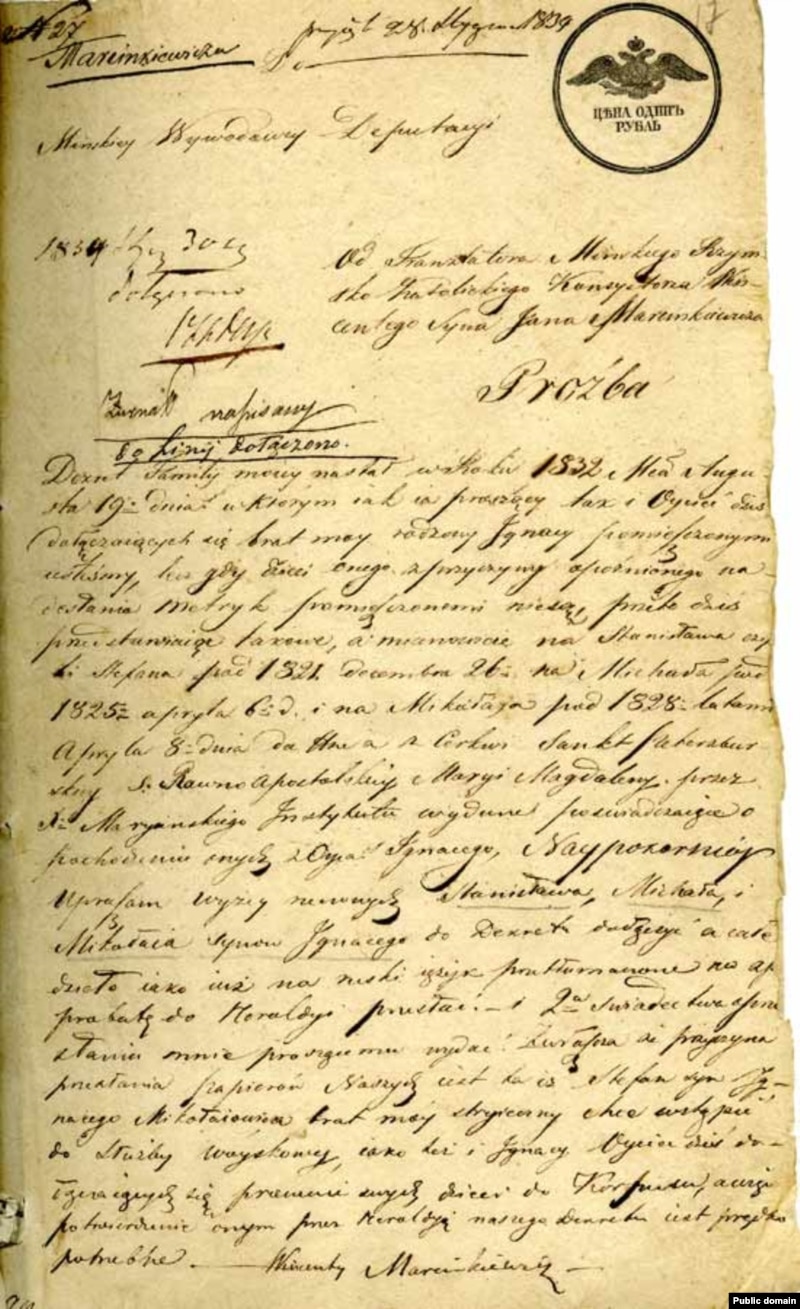 N 27
Marcinkiewicza
28. 1834
17
ЦѢНА ОДИНЪ
РУБЛЬ
Minskiey Wywodowey Deputacyi
1834 30
dołączono
Od Translatora Minskiego Rzym-
sko Katolickiego Konsystorza Win-
centego Syna Jana Marcinkiewicza
Proźba
napisany
do Linij dołączono.
Dekret Familij moiey nastał w Roku 1832 Mca Augu-
sta 19 dnia w ktorym jak ia proszący tak i Oyciec dziś
dołączaiących się brat moy rodzony Ignacy pomieszczonymi
iesteśmy, lecz gdy dzieci onego z przyczyny opoźnionego na-
desłania metryk pomieszczonemi niesą, przeto dziś
przedstawiaiąc takowe, a mianowicie na Stanisława czy-
li Stefana pod 1821 decembra 26 na Michała pod
1825 apryla 6 d. i na Mikołaja pod 1828 latami
Apryla 8 dnia datne a z Cerkwi Sankt Peterzbur-
skiey S. Rawno Apostolskiey Maryi Magdaleny przez
Maryinskiego Instytutu wydane poswiadczaiące o
pochodzeniu onych z Oyca Ignacego, Naypokorniey
Upraszam wyzey rzeczonych Stanisława, Michała, i
Mikołaia synow Ignacego do Dekretu dołączyć a całe
dzieło iako iuż na ruski ięzyk przetłumaczone na ap-
probatę do Heroldyi przesłać. – i 2 świadectwa o prze-
słaniu mnie proszącemu wydać. Zwłaszcza że przyczyna
przesłania papierow Naszych iest ta iż Stefan syn Ig-
nacego Mikołaiowicz brat moy stryieczny chce wstąpić
do Służby woyskowey, iako też i Ignacy Oyciec dziś do-
łączaiących się swych dzieci do Korpusu, a więc
potwierdzenie onym przez Heroldyą naszego Dekretu iest prędko
potrzebne. – Wincenty Marcinkiewicz –
Public domain